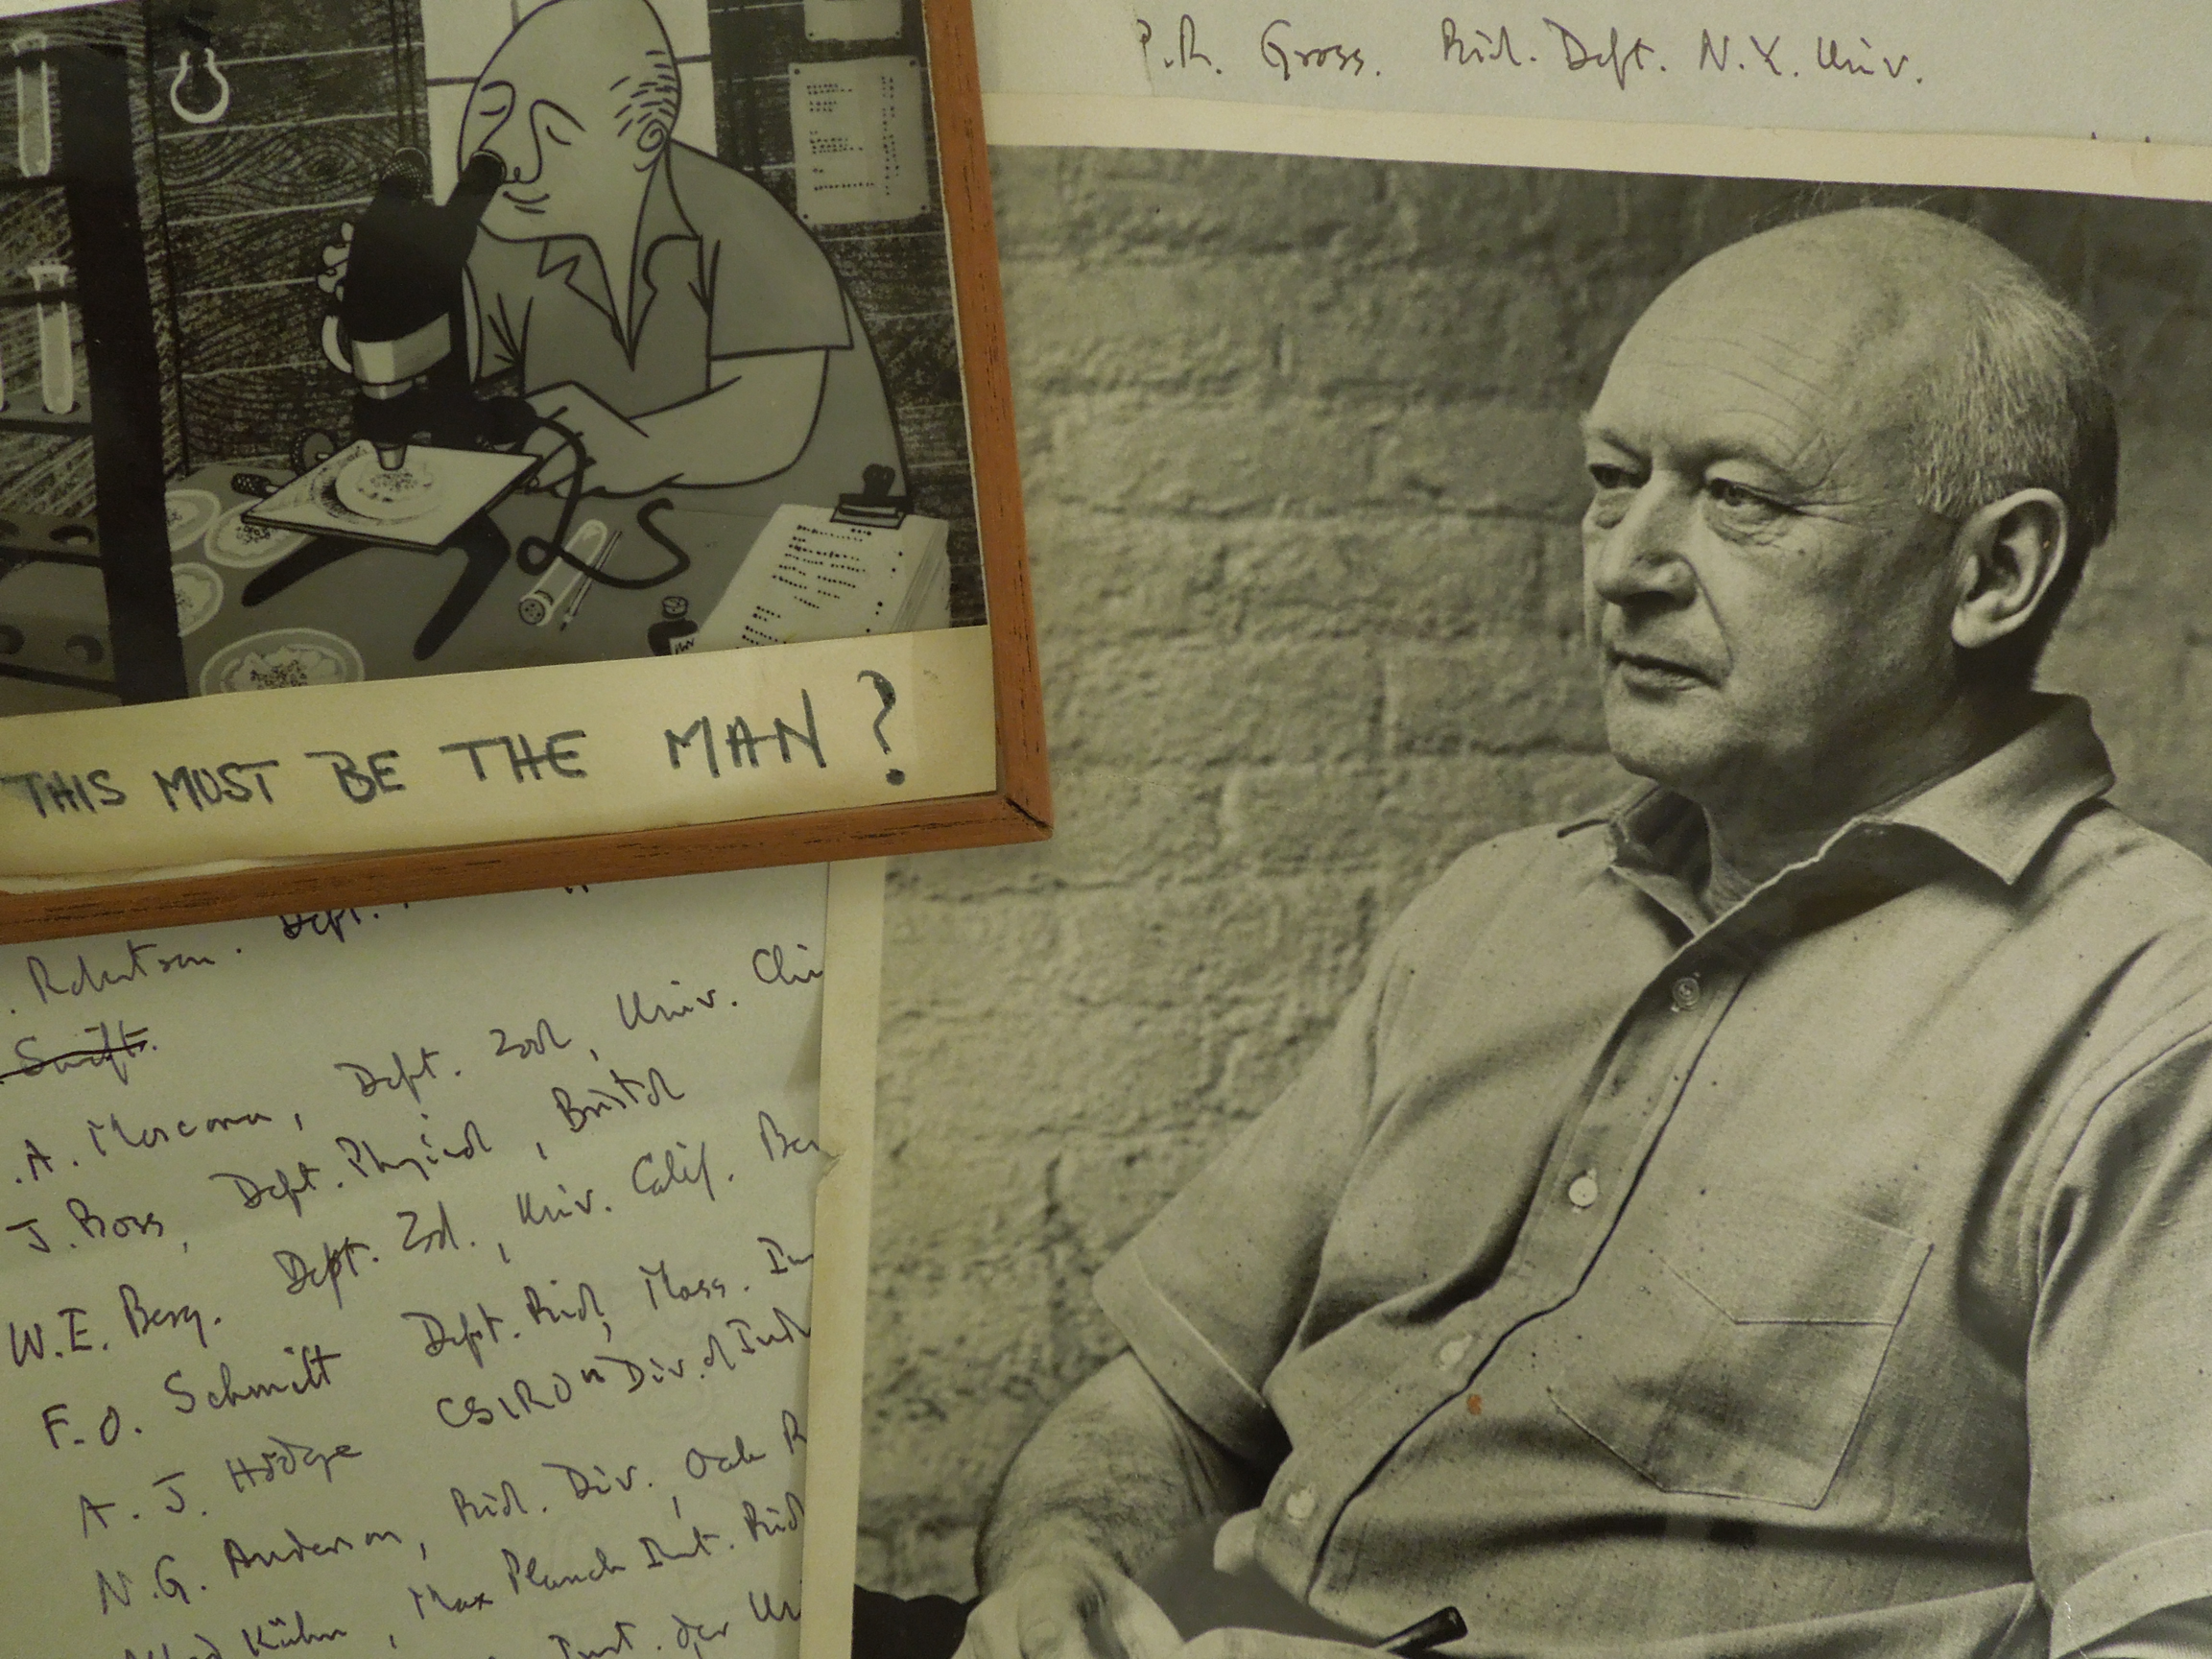 P.R. Gross. Biol. Dept. N.Y. Univ.
THIS MUST BE THE MAN?
Robertson. Dept.
Swift.
A. Moscona, Dept. Zool, Univ. Chi
J. Ross, Dept. Physiol, Bristol
W.E. Berg. Dept. Zool., Univ. Calif. Ber
F.O. Schmitt Dept. Biol, Mass. In
A. J. Hodge CSIRO Div. of Ind
N.G. Anderson, Biol. Div., Oak R
Kühn, Max Planck Inst. Biol
Inst. der Un